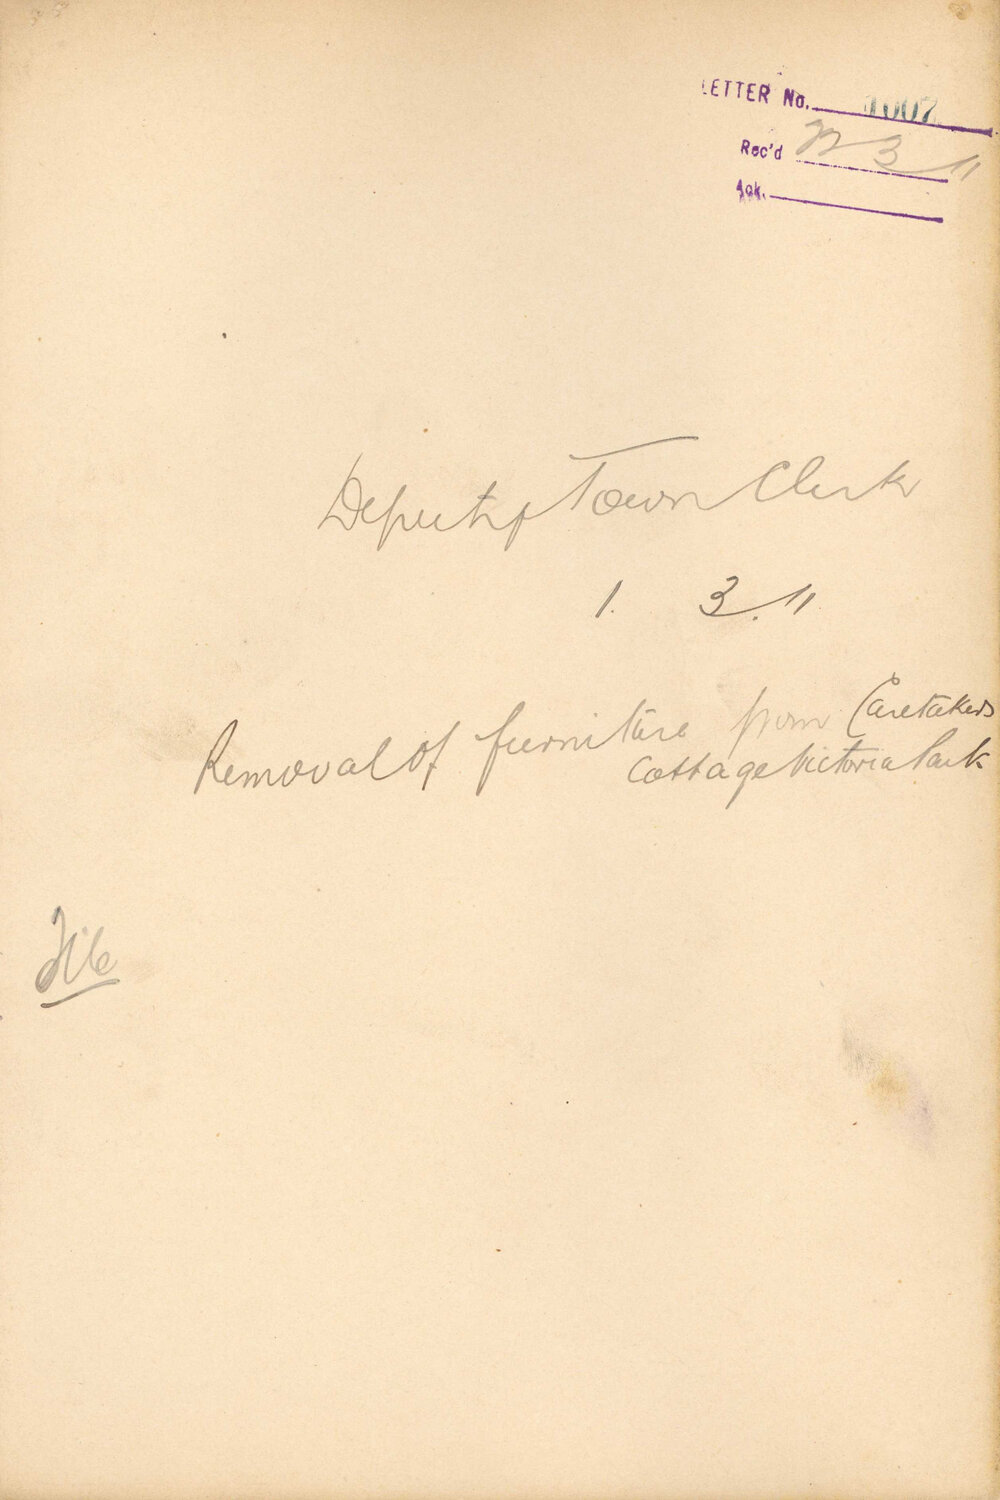 LETTER No. 1007
Rec'd 3 11
Ack.
Deputy Town Clerk
1. 3. 11
Removal of furniture from Caretakers
Cottage Victoria Park
File